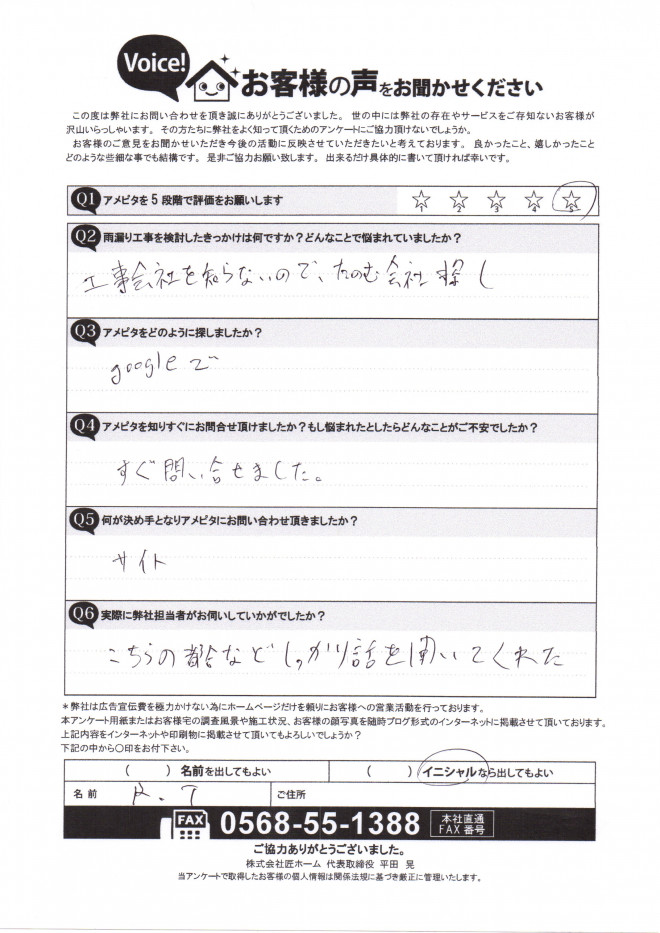 Voice!
お客様の声をお聞かせください
この度は弊社にお問い合わせを頂き誠にありがとうございました。 世の中には弊社の存在やサービスをご存知ないお客様が
沢山いらっしゃいます。 その方たちに弊社をよく知って頂くためのアンケートにご協力頂けないでしょうか。
お客様のご意見をお聞かせいただき今後の活動に反映させていただきたいと考えております。 良かったこと、嬉しかったこと
どのような些細な事でも結構です。 是非ご協力お願い致します。 出来るだけ具体的に書いて頂ければ幸いです。
Q1 アメピタを5段階で評価をお願いします
1 2 3 4 5
Q2 雨漏り工事を検討したきっかけは何ですか？どんなことで悩まれていましたか？
工事会社を知らないので、たのむ会社探し
Q3 アメピタをどのように探しましたか？
googleで
Q4 アメピタを知りすぐにお問合せ頂けましたか？もし悩まれたとしたらどんなことがご不安でしたか？
すぐ問い合せました。
Q5 何が決め手となりアメピタにお問い合わせ頂きましたか？
サイト
Q6 実際に弊社担当者がお伺いしていかがでしたか？
こちらの都合などしっかり話を聞いてくれた
＊弊社は広告宣伝費を極力かけない為にホームページだけを頼りにお客様への営業活動を行っております。
本アンケート用紙またはお客様宅の調査風景や施工状況、お客様の顔写真を随時ブログ形式のインターネットに掲載させて頂いております。
上記内容をインターネットや印刷物に掲載させて頂いてもよろしいでしょうか？
下記の中から○印をお付下さい。
（　　）名前を出してもよい　（　　）イニシャルなら出してもよい
名前 K.T ご住所
FAX 0568-55-1388 本社直通 FAX番号
ご協力ありがとうございました。
株式会社匠ホーム 代表取締役 平田 晃
当アンケートで取得したお客様の個人情報は関係法規に基づき厳正に管理いたします。